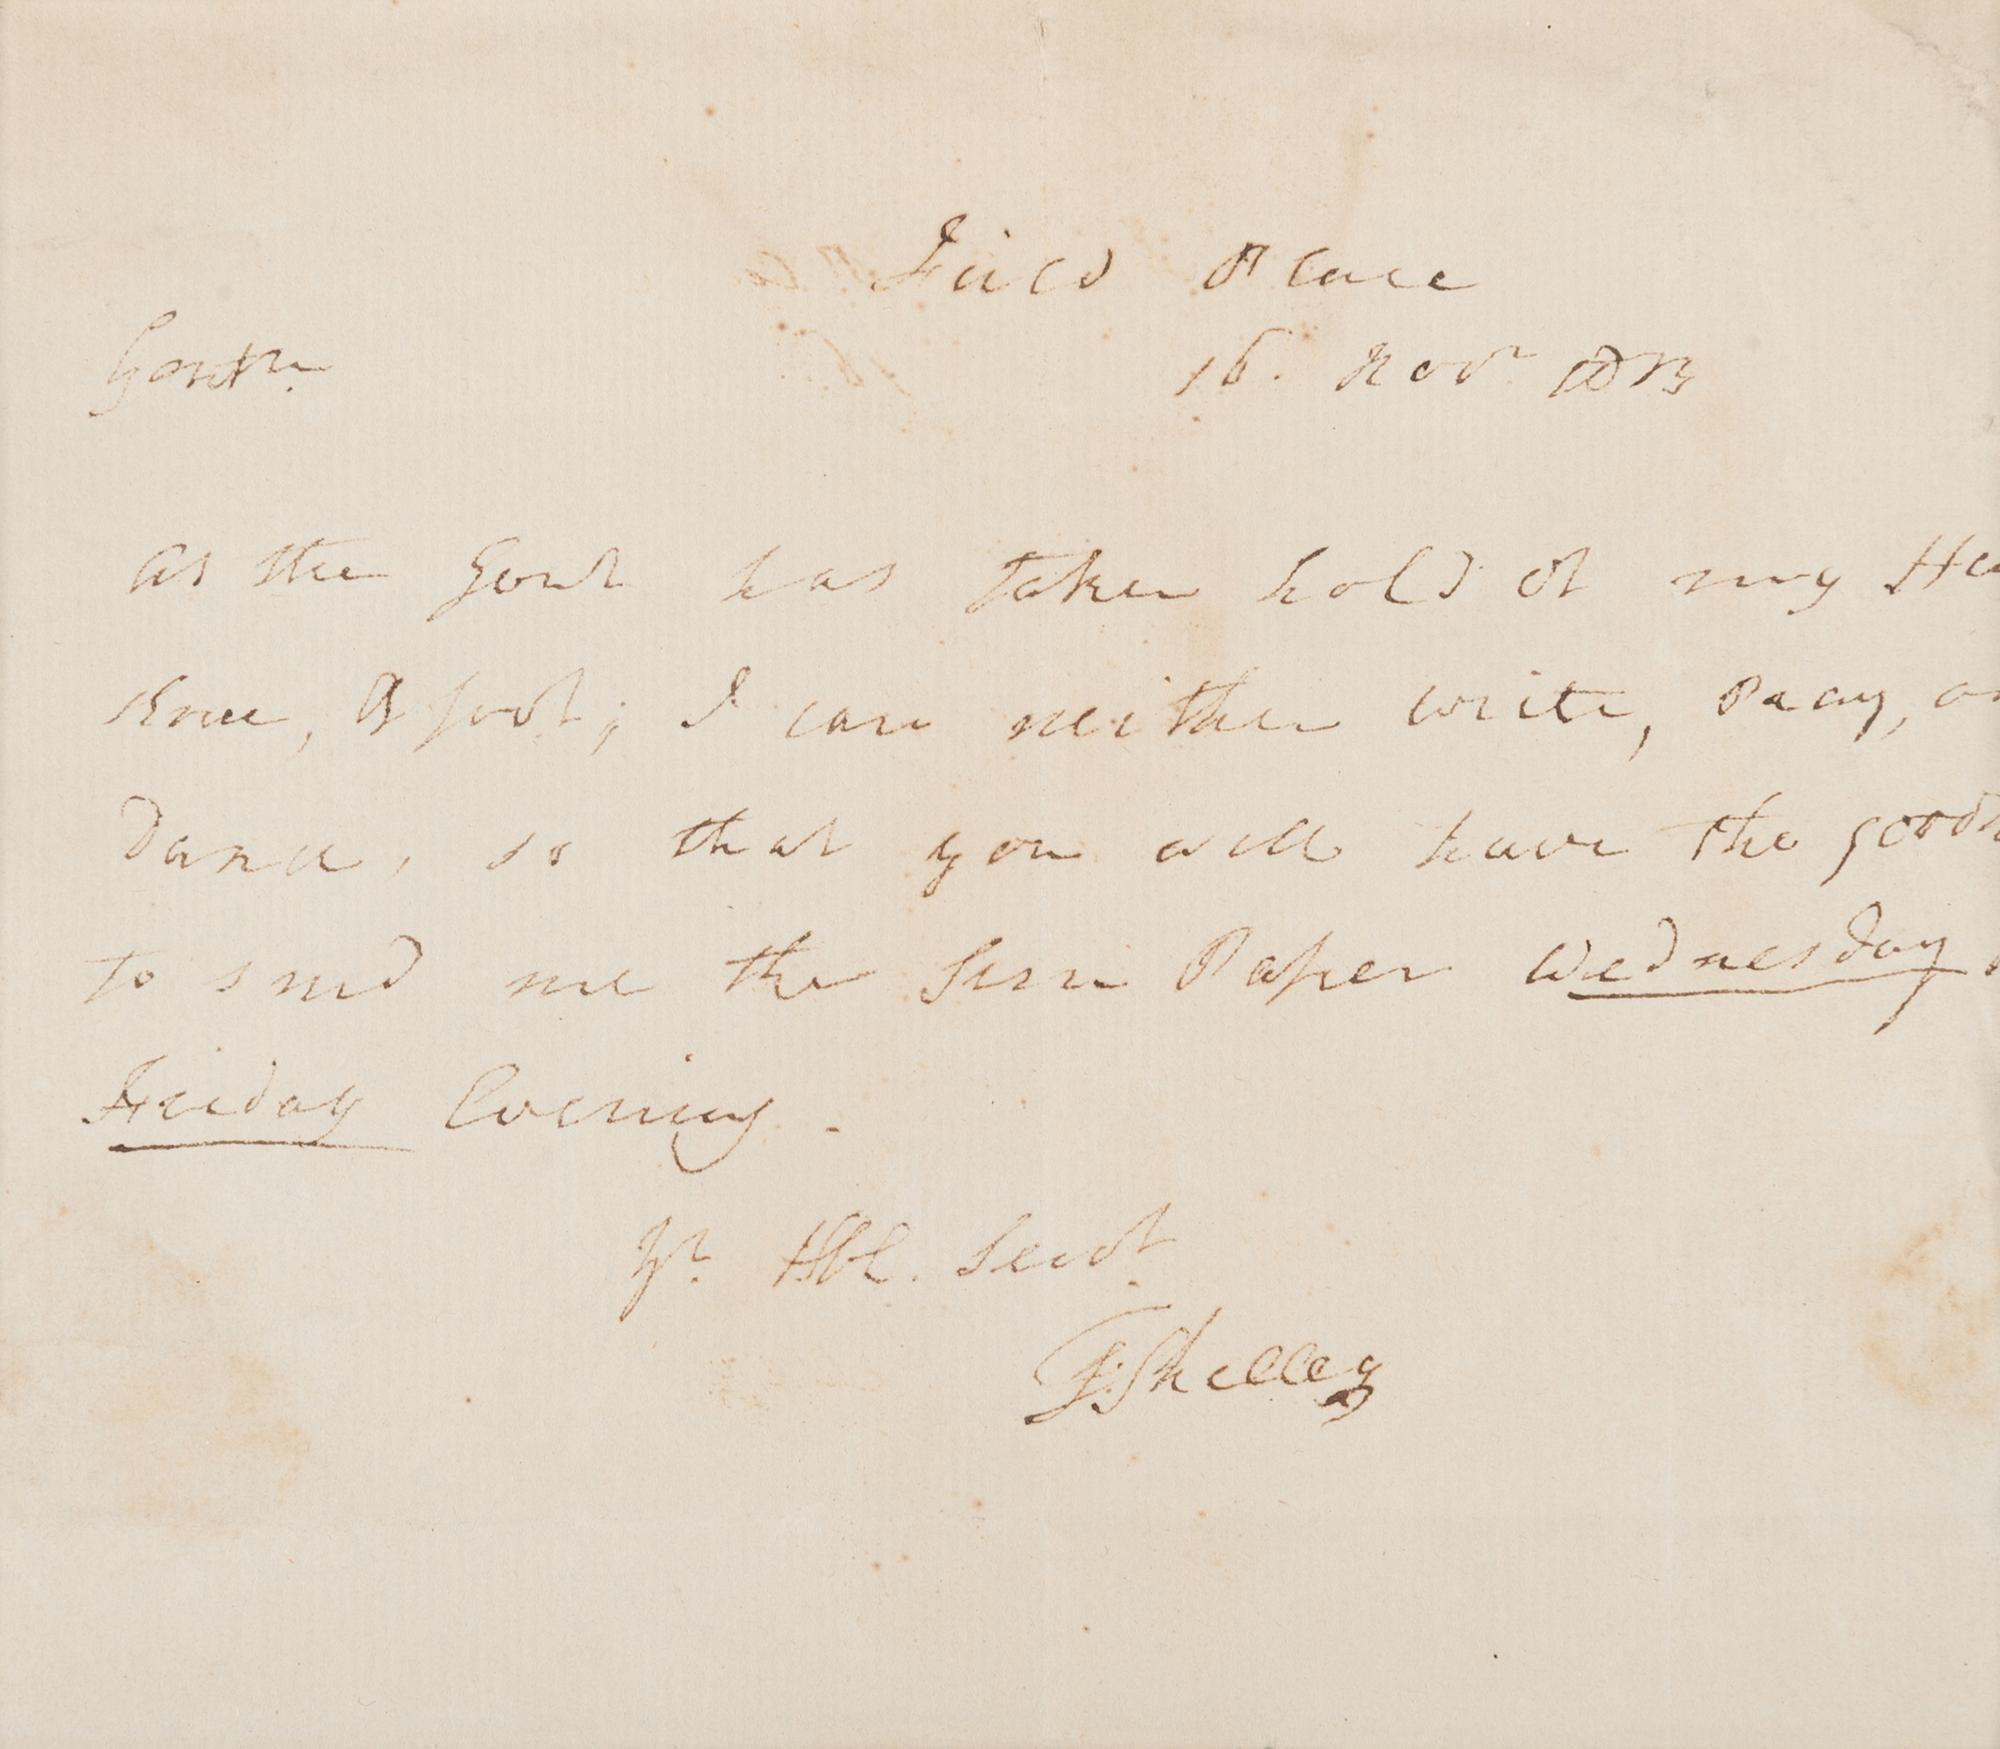 Field Place
Gentn.
16. Novr 1813
as the Gout has taken hold of my
Knee, & foot; I can neither write, Play, or
Dance, so that you will have the
to send me the Sun Paper Wednesday
Friday Evening.
Yr. Hble. Servt.
T. Shelley